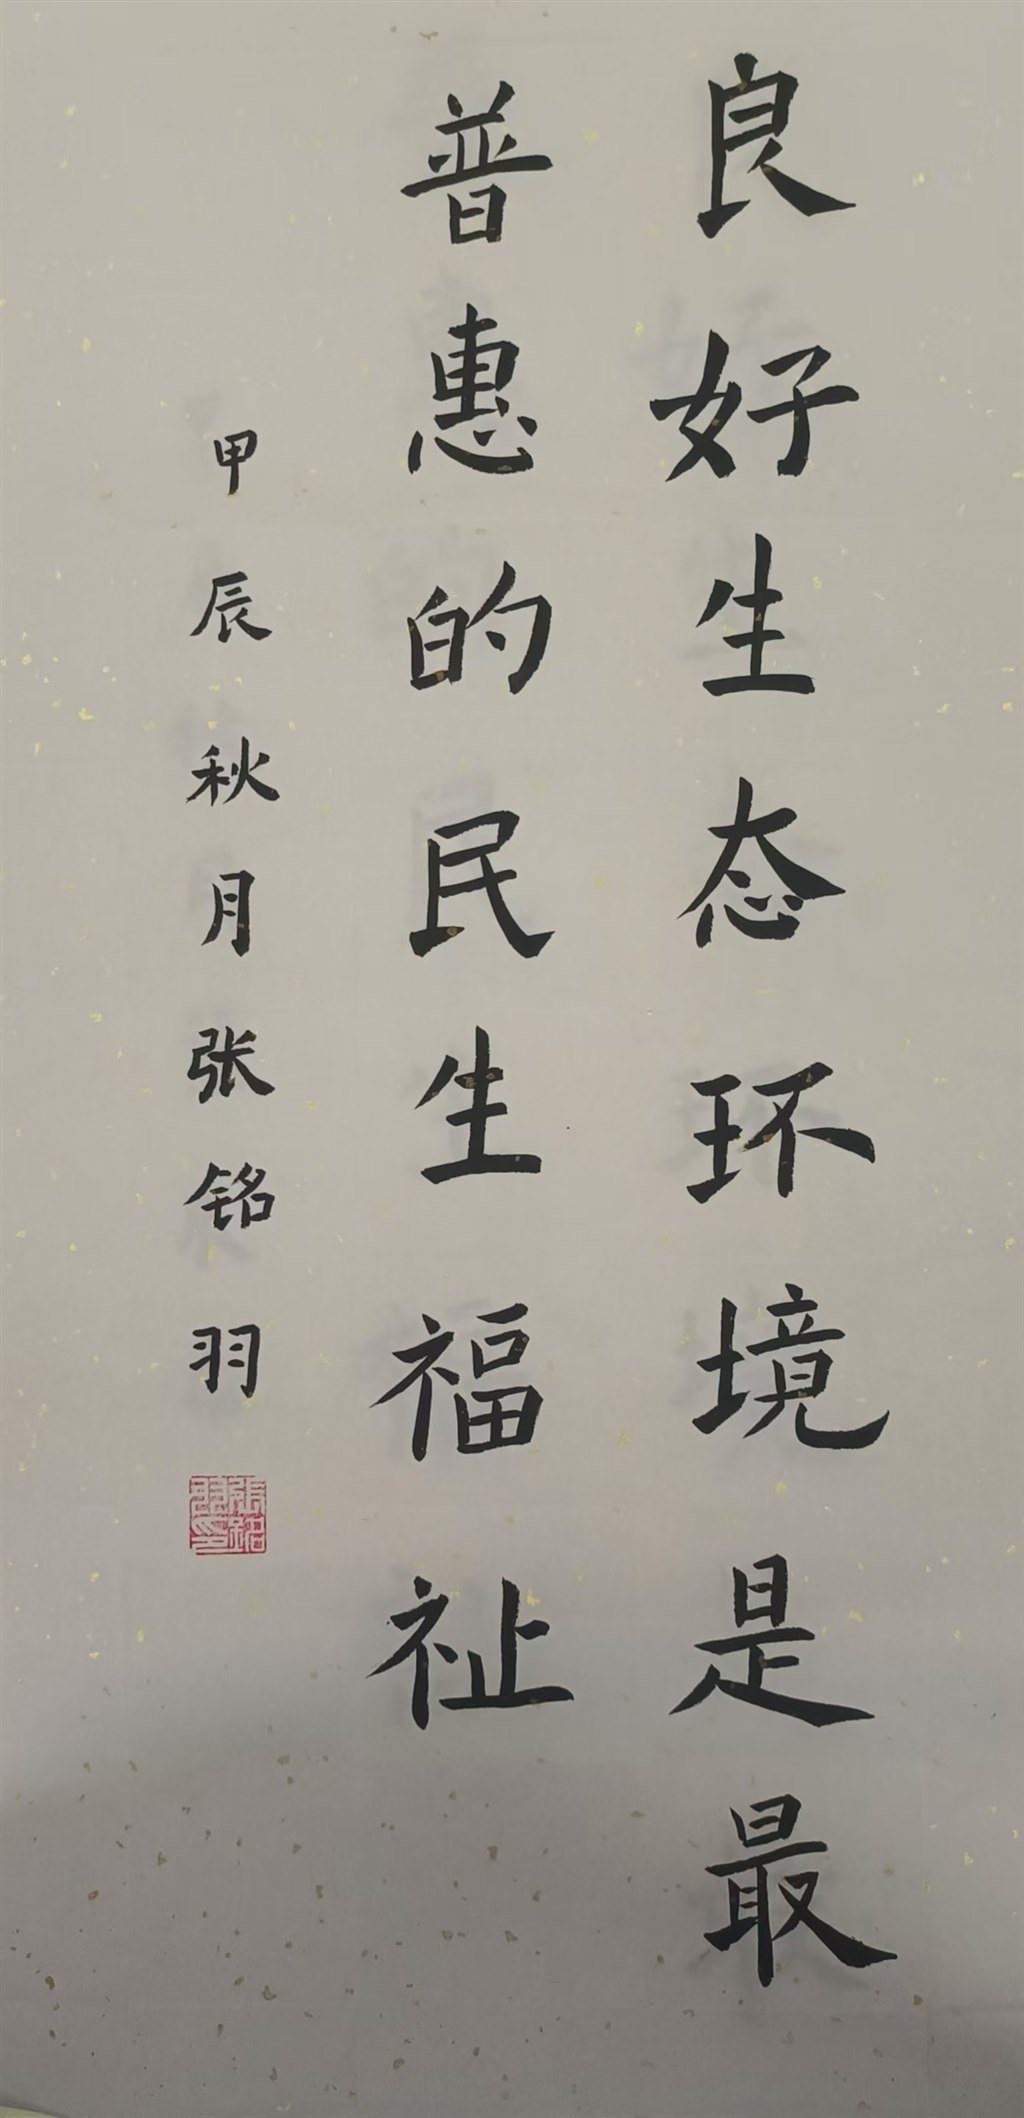 良好生态环境是最
普惠的民生福祉
甲辰秋月张铭羽
張銘翌印